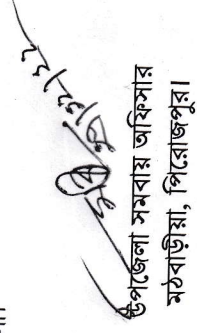 উপজেলা সমবায় অফিসার
মঠবাড়ীয়া, পিরোজপুর।